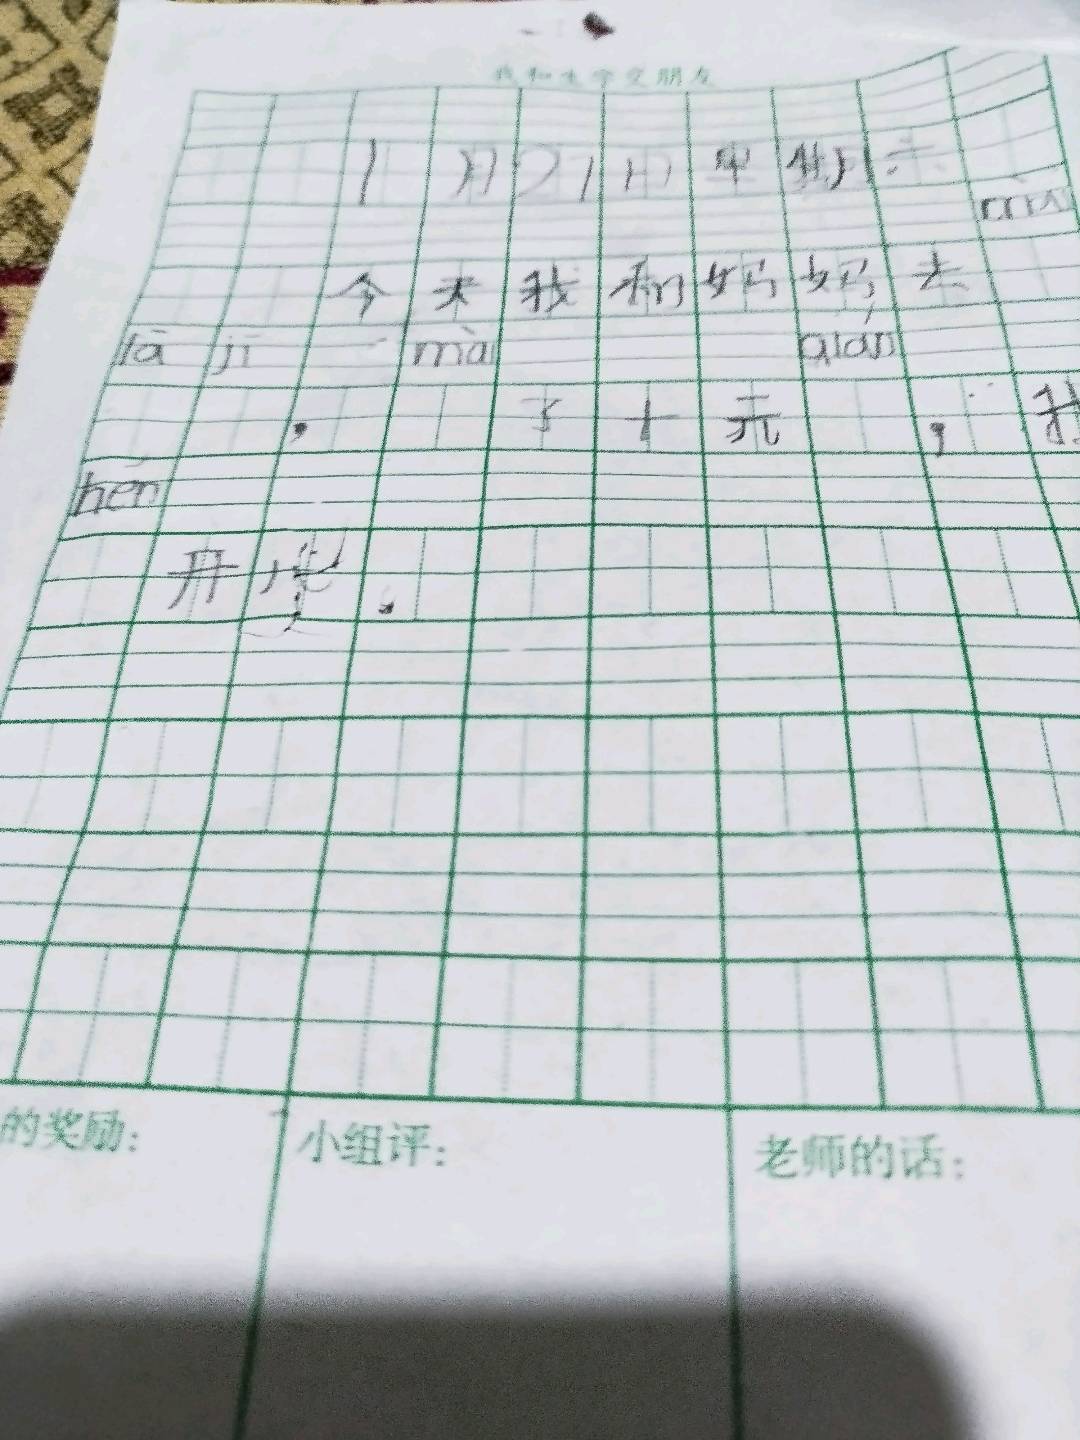 我和生字交朋友
1月21日 星期六
mài
今天我和妈妈去
lā jī mài qián
，了十元，我
hěn
开心.
的奖励：
小组评：
老师的话：